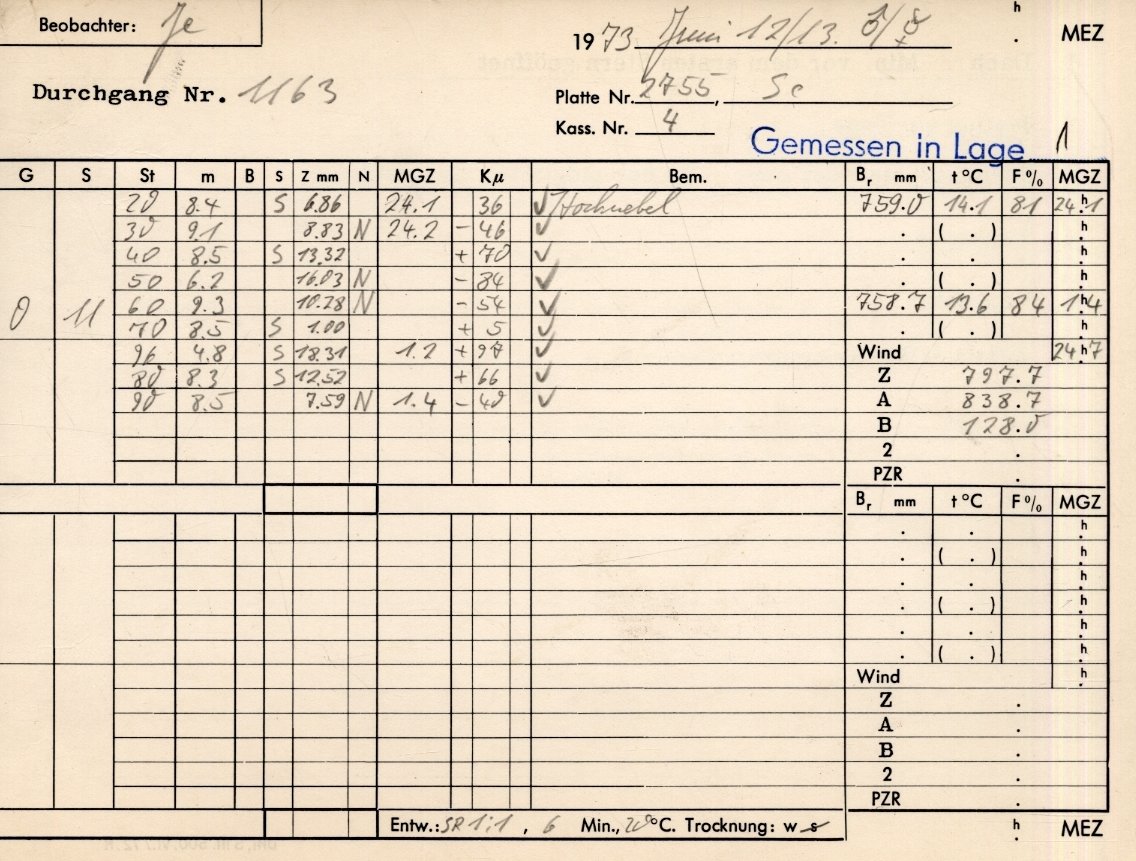 Beobachter: Je
h
1973 Juni 12/13. ♂/☿ . MEZ
Durchgang Nr. 1163
Platte Nr. 2755, Sc
Kass. Nr. 4
Gemessen in Lage 1
G S St m B S Z mm N MGZ Kμ Bem. Br mm t °C F % MGZ
20 8.4 S 6.86 24.1 36 ✓ Hochnebel 759.0 14.1 81 24h1
30 9.1 8.83 N 24.2 - 46 ✓ . ( . ) h
40 8.5 S 13.32 + 70 ✓ . . h
50 6.2 16.03 N - 84 ✓ . ( . ) h
0 11 60 9.3 10.28 N - 54 ✓ 758.7 13.6 84 1h4
70 8.5 S 1.00 + 5 ✓ . ( . ) h
96 4.8 S 18.31 1.2 + 97 ✓ Wind 24h7
80 8.3 S 12.52 + 66 ✓ Z 797.7
90 8.5 7.59 N 1.4 - 40 ✓ A 838.7
B 128.0
2 .
PZR .
Br mm t °C F % MGZ
. . h
. ( . ) h
. . h
. ( . ) h
. . h
. ( . ) h
Wind h
Z .
A .
B .
2 .
PZR .
Entw.: SR 1:1 , 6 Min., 20°C. Trocknung: w s h . MEZ